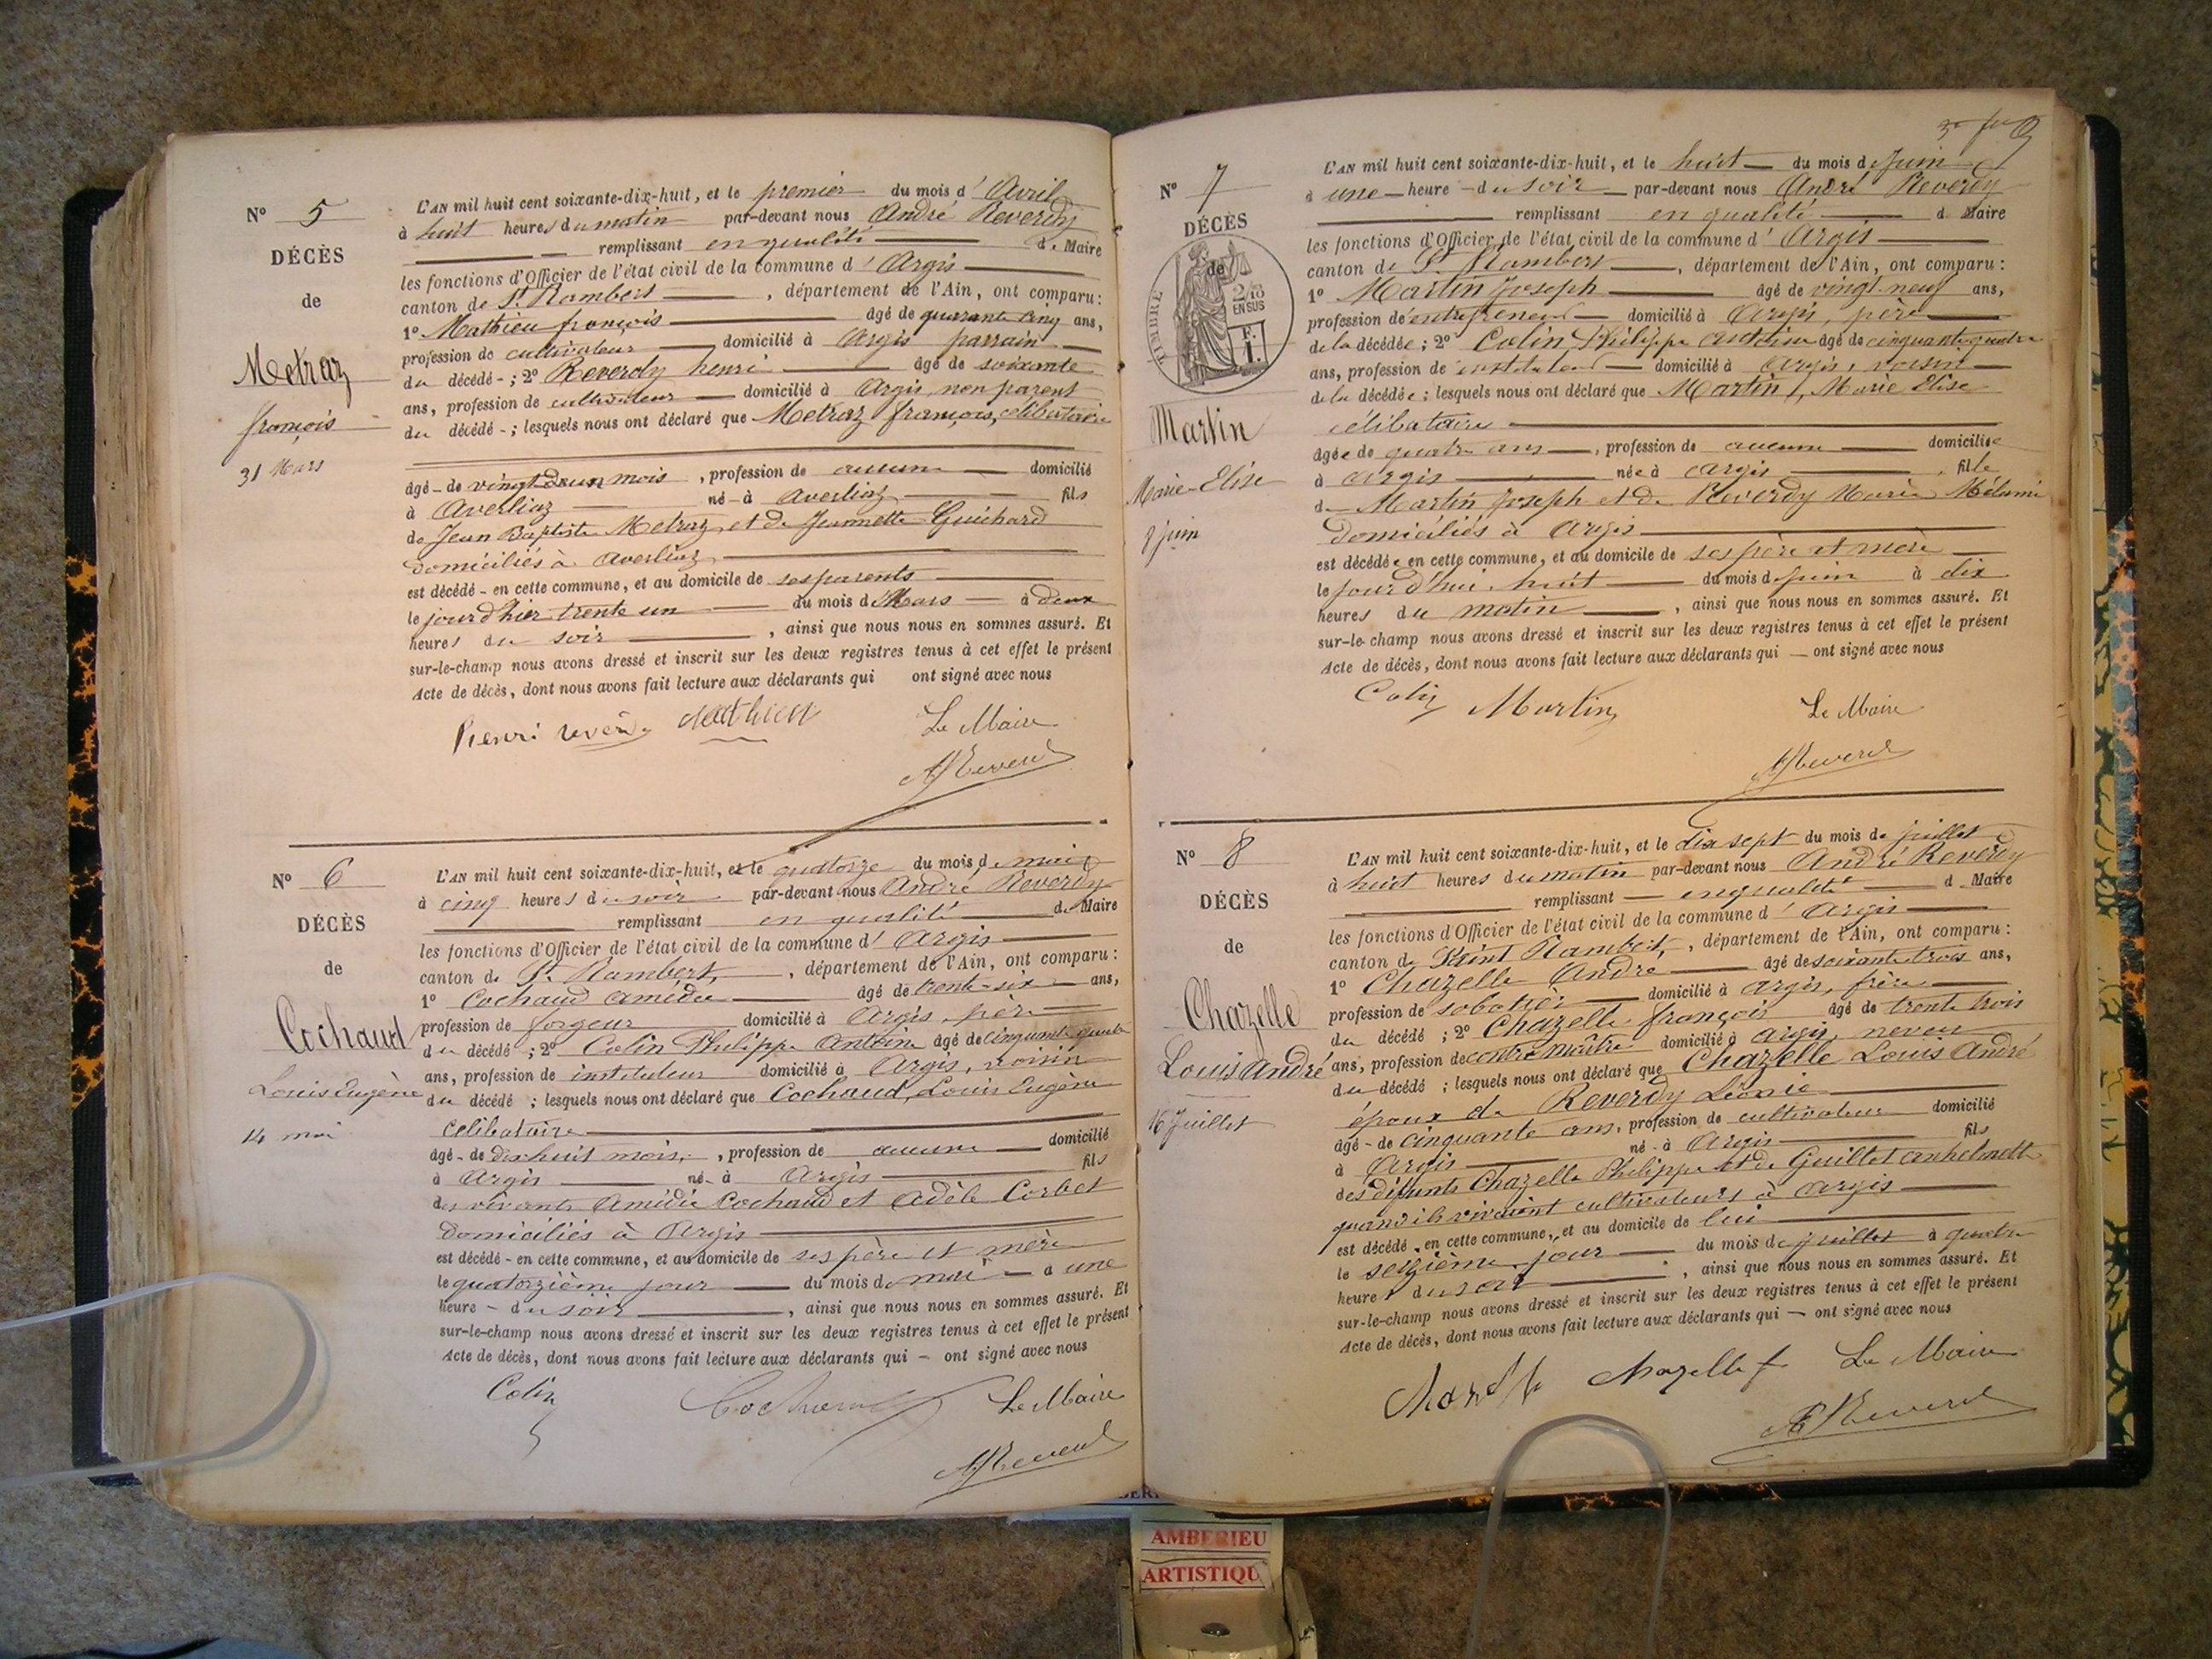 Nº 5
DÉCÈS
de
Metraz
françois
31 Mars
L'AN mil huit cent soixante-dix-huit, et le premier du mois d' Avril
à huit heures du matin par-devant nous André Reverdy
remplissant en qualité de Maire
les fonctions d'Officier de l'état civil de la commune d' Argis
canton de St. Rambert, département de l'Ain, ont comparu:
1º Mathieu françois âgé de quarante cinq ans,
profession de cultivateur domicilié à Argis parrain
du décédé ; 2º Reverdy henri âgé de soixante
ans, profession de cultivateur domicilié à Argis, non parent
du décédé ; lesquels nous ont déclaré que Metraz françois, célibataire
âgé de vingt deux mois, profession de aucune domicilié
à Averliaz né à Averliaz fils
de Jean Baptiste Metraz et de Jeannette Guichard
domiciliés à Averliaz
est décédé en cette commune, et au domicile de ses parents
le jour d'hier trente un du mois de Mars à deux
heures du soir, ainsi que nous nous en sommes assuré. Et
sur-le-champ nous avons dressé et inscrit sur les deux registres tenus à cet effet le présent
Acte de décès, dont nous avons fait lecture aux déclarants qui ont signé avec nous
henri Mathieu Le Maire
AReverd
Nº 6
DÉCÈS
de
Cochaud
Louis Eugène
14 mai
L'AN mil huit cent soixante-dix-huit, et le quatorze du mois de mai
à cinq heures du soir par-devant nous André Reverdy
remplissant en qualité de Maire
les fonctions d'Officier de l'état civil de la commune d' Argis
canton de St. Rambert, département de l'Ain, ont comparu:
1º Cochaud Amédée âgé de trente-six ans,
profession de forgeur domicilié à Argis, père
du décédé ; 2º Colin Philippe Antoine âgé de cinquante quatre
ans, profession de instituteur domicilié à Argis, voisin
du décédé ; lesquels nous ont déclaré que Cochaud, Louis Eugène
célibataire
âgé de dix huit mois, profession de aucune domicilié
à Argis né à Argis fils
des vivants Amédée Cochaud et Adèle Corbet
domiciliés à Argis
est décédé en cette commune, et au domicile de ses père et mère
le quatorzième jour du mois de mai à une
heure du soir, ainsi que nous nous en sommes assuré. Et
sur-le-champ nous avons dressé et inscrit sur les deux registres tenus à cet effet le présent
Acte de décès, dont nous avons fait lecture aux déclarants qui ont signé avec nous
Colin Cochaud Le Maire
AReverd
Nº 7
DÉCÈS
de
TIMBRE
2/10
EN SUS
F.
1.
Martin
Marie-Elise
8 juin
L'AN mil huit cent soixante-dix-huit, et le huit du mois de Juin
à une heure du soir par-devant nous André Reverdy
remplissant en qualité de Maire
les fonctions d'Officier de l'état civil de la commune d' Argis
canton de St. Rambert, département de l'Ain, ont comparu:
1º Martin Joseph âgé de vingt-neuf ans,
profession d'entrepreneur domicilié à Argis, père
de la décédée ; 2º Colin Philippe Antoine âgé de cinquante quatre
ans, profession de instituteur domicilié à Argis, voisin
de la décédée ; lesquels nous ont déclaré que Martin, Marie Elise
célibataire
âgée de quatre ans, profession de aucune domiciliée
à Argis née à Argis, fille
de Martin Joseph et de Reverdy Marie Mélanie
domiciliés à Argis
est décédée en cette commune, et au domicile de ses père et mère
le jour d'hui huit du mois de juin à dix
heures du matin, ainsi que nous nous en sommes assuré. Et
sur-le-champ nous avons dressé et inscrit sur les deux registres tenus à cet effet le présent
Acte de décès, dont nous avons fait lecture aux déclarants qui ont signé avec nous
Colin Martin Le Maire
AReverd
Nº 8
DÉCÈS
de
Chazelle
Louis André
16 Juillet
L'AN mil huit cent soixante-dix-huit, et le dix sept du mois de juillet
à huit heures du matin par-devant nous André Reverdy
remplissant en qualité de Maire
les fonctions d'Officier de l'état civil de la commune d' Argis
canton de Saint Rambert, département de l'Ain, ont comparu:
1º Chazelle André âgé de soixante trois ans,
profession de sabotier domicilié à Argis, frère
du décédé ; 2º Chazelle françois âgé de trente trois
ans, profession de contre maître domicilié à Argis, neveu
du décédé ; lesquels nous ont déclaré que Chazelle Louis André
époux de Reverdy Léonie
âgé de cinquante ans, profession de cultivateur domicilié
à Argis né à Argis fils
des défunts Chazelle Philippe et de Guillet
quand ils vivaient cultivateurs à Argis
est décédé en cette commune, et au domicile de lui
le seizième jour du mois de juillet à quatre
heures du soir, ainsi que nous nous en sommes assuré. Et
sur-le-champ nous avons dressé et inscrit sur les deux registres tenus à cet effet le présent
Acte de décès, dont nous avons fait lecture aux déclarants qui ont signé avec nous
Chazelle f Le Maire
AReverd
AMBERIEU
ARTISTIQU